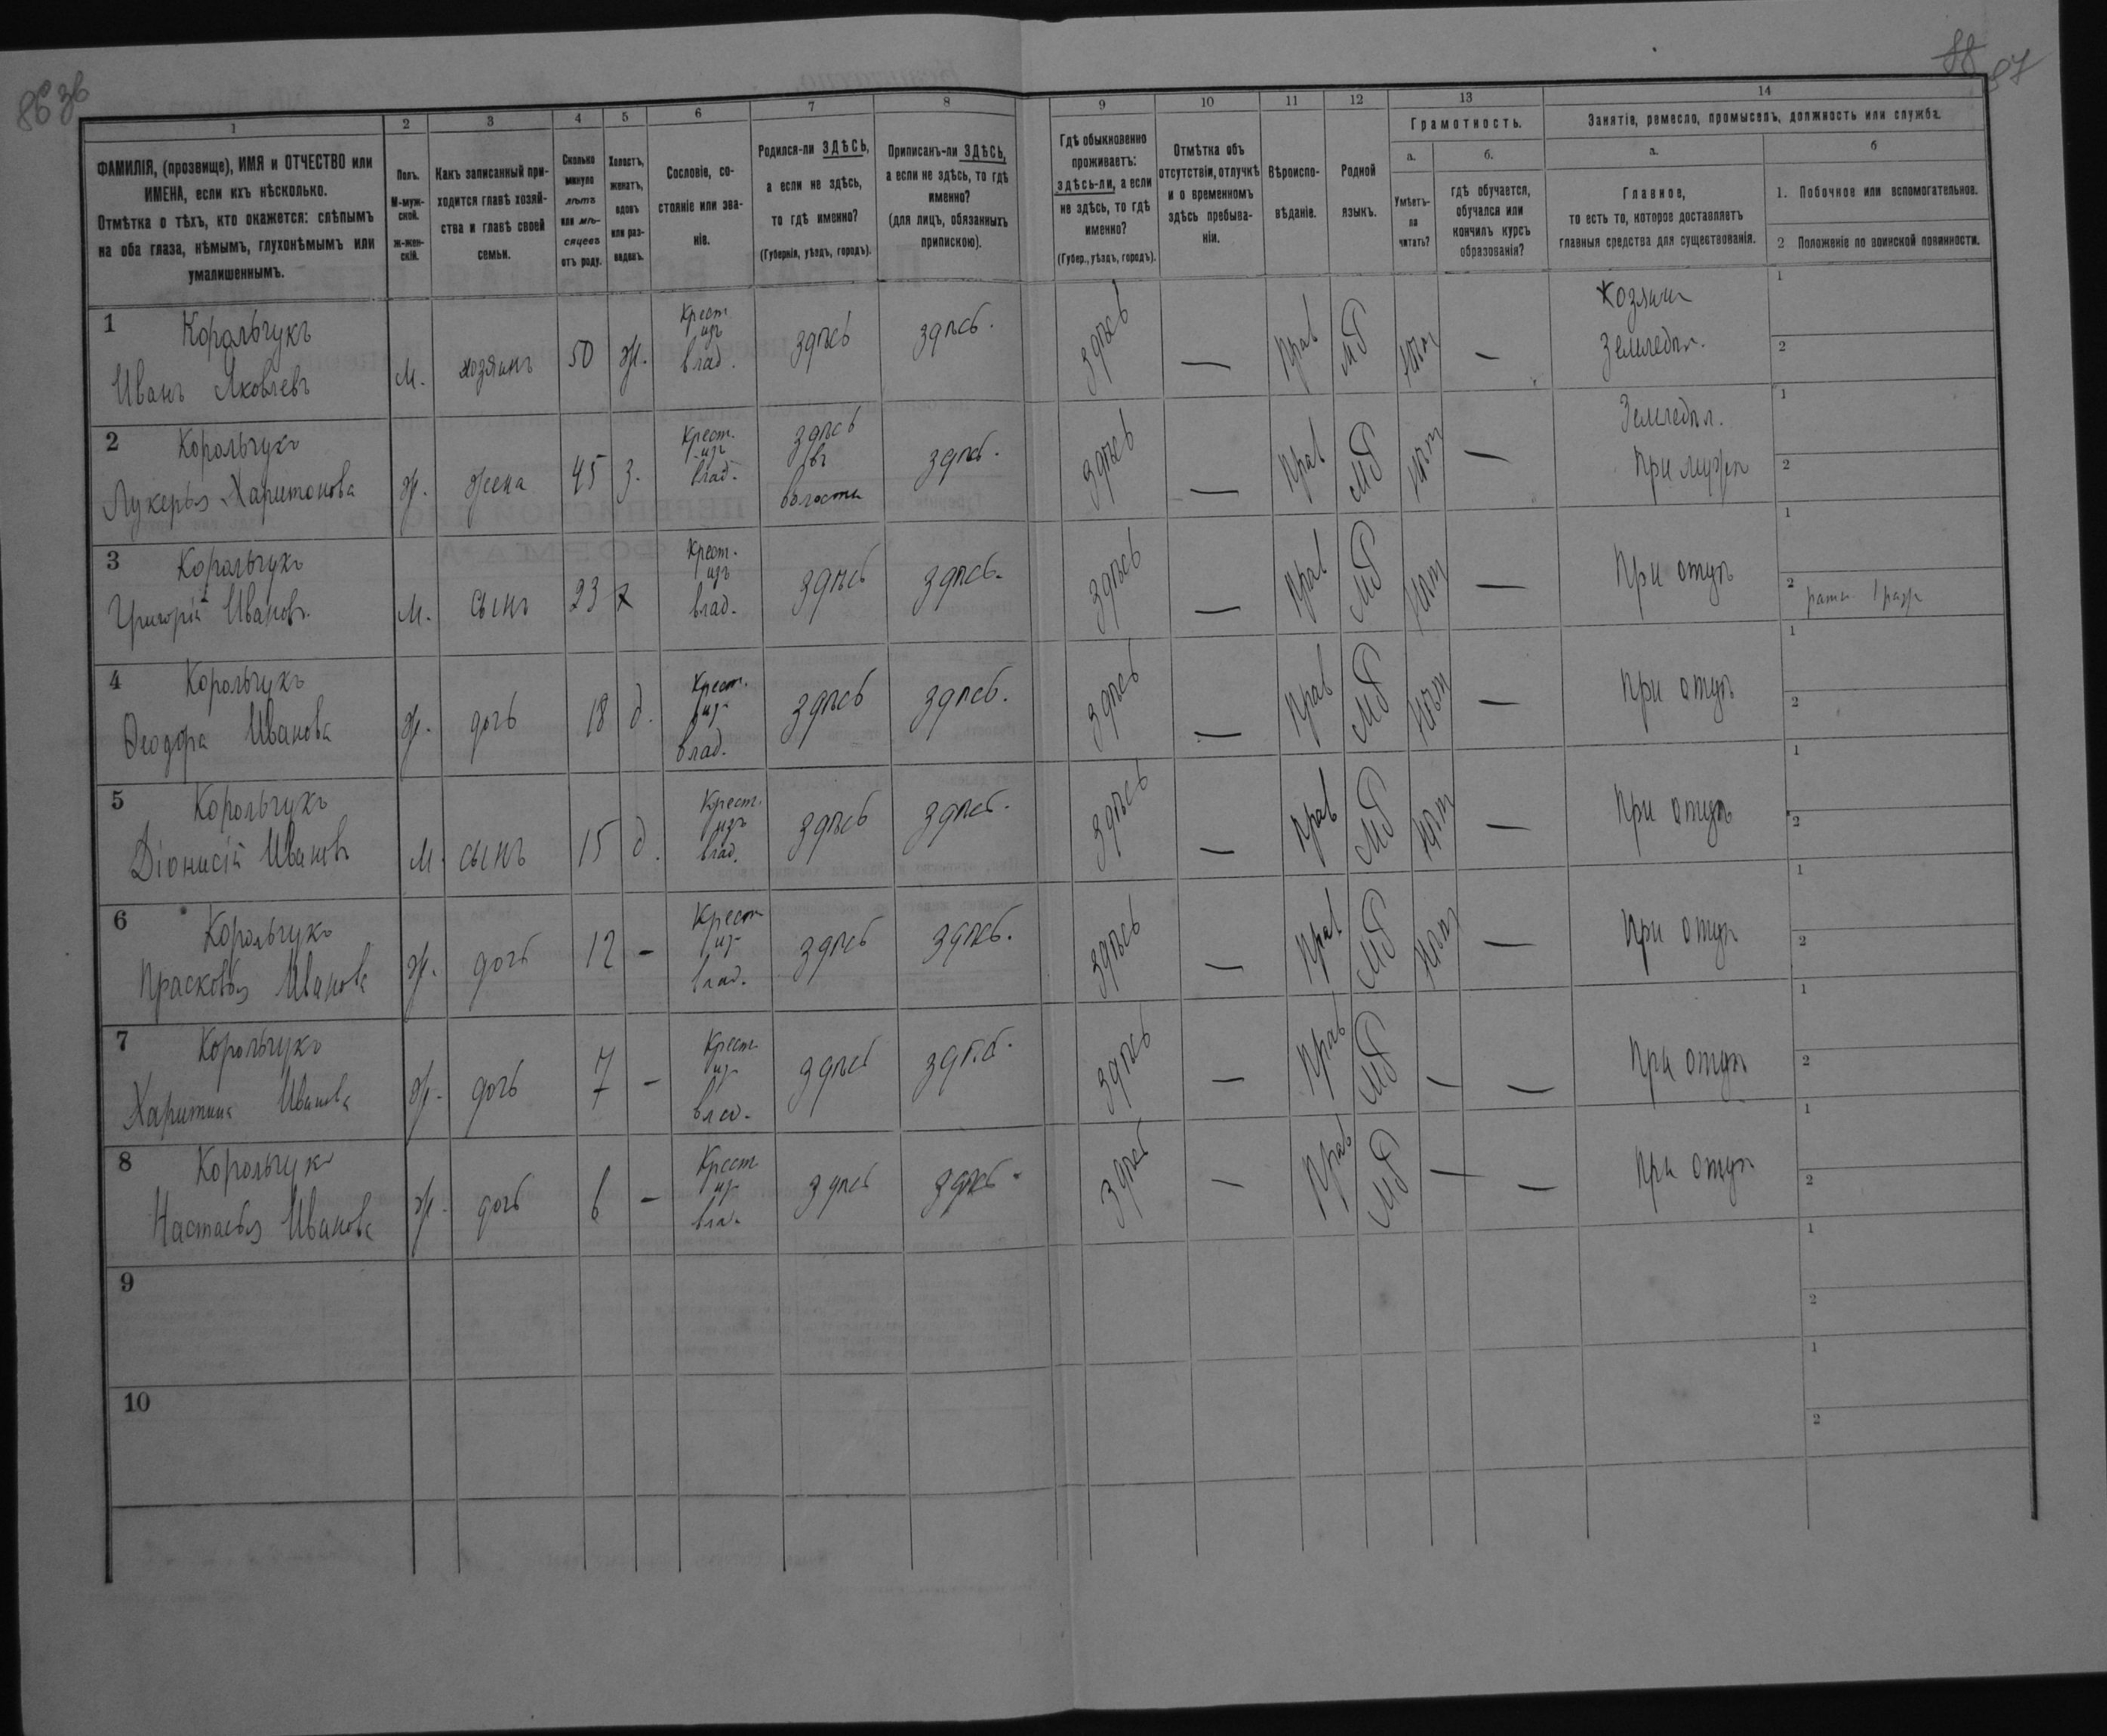 86 зв
88
87
1
2
3
4
5
6
7
8
9
10
11
12
13
14
ФАМИЛІЯ, (прозвище), ИМЯ и ОТЧЕСТВО или
ИМЕНА, если ихъ нѣсколько.
Отмѣтка о тѣхъ, кто окажется: слѣпымъ
на оба глаза, нѣмымъ, глухонѣмымъ или
умалишеннымъ.
Полъ.
М-муж-
ской.
ж-жен-
скій.
Какъ записанный при-
ходится главѣ хозяй-
ства и главѣ своей
семьи.
Сколько
минуло
лѣтъ
или мѣ-
сяцевъ
отъ роду.
Холостъ,
женатъ,
вдовъ
или раз-
веденъ.
Сословіе, со-
стояніе или зва-
ніе.
Родился-ли ЗДѢСЬ,
а если не здѣсь,
то гдѣ именно?
(Губернія, уѣздъ, городъ).
Приписанъ-ли ЗДѢСЬ,
а если не здѣсь, то гдѣ
именно?
(для лицъ, обязанныхъ
припискою).
Гдѣ обыкновенно
проживаетъ:
здѣсь-ли, а если
не здѣсь, то гдѣ
именно?
(Губер., уѣздъ, городъ).
Отмѣтка объ
отсутствіи, отлучкѣ
и о временномъ
здѣсь пребыва-
ніи.
Вѣроиспо-
вѣданіе.
Родной
языкъ.
Грамотность.
а.
Умѣетъ-
ли
читать?
б.
гдѣ обучается,
обучался или
кончилъ курсъ
образованія?
Занятія, ремесло, промыселъ, должность или служба.
а.
Главное,
то есть то, которое доставляетъ
главныя средства для существованія.
б
1. Побочное или вспомогательное.
2 Положеніе по воинской повинности.
1 Корольчукъ
Иванъ Яковлевъ
М. хозяинъ 50 ж. Крест. изъ влад. здѣсь здѣсь. здѣсь — Прав МР нѣт — Хозяин Земледѣл. 1 2
2 Корольчукъ
Лукерья Харитонова
Ж. жена 45 з. Крест. изъ влад. здѣсь въ волости здѣсь. здѣсь — Прав МР нѣт — Земледѣл. При мужѣ 1 2
3 Корольчукъ
Григорій Ивановъ.
М. сынъ 23 х Крест. изъ влад. здѣсь здѣсь. здѣсь — Прав МР нѣт — При отцѣ 1 2 ратн. 1 разр
4 Корольчукъ
Ѳеодора Иванова
Ж. дочь 18 д. Крест. изъ влад. здѣсь здѣсь. здѣсь — Прав МР нѣт — При отцѣ 1 2
5 Корольчукъ
Діонисій Ивановъ
М. сынъ 15 д. Крест. изъ влад. здѣсь здѣсь. здѣсь — Прав МР нѣт — При отцѣ 1 2
6 Корольчукъ
Прасковья Иванова
Ж. дочь 12 – Крест изъ влад. здѣсь здѣсь. здѣсь — Прав МР нѣт — При отцѣ 1 2
7 Корольчукъ
Харитина Иванова
Ж. дочь 7 – Крест изъ влад. здѣсь здѣсь. здѣсь — Прав МР — — При отцѣ 1 2
8 Корольчукъ
Настасья Иванова
Ж. дочь 6 – Крест изъ вла. здѣсь здѣсь. здѣсь — Прав МР — — При отцѣ 1 2
9 1 2
10 1 2